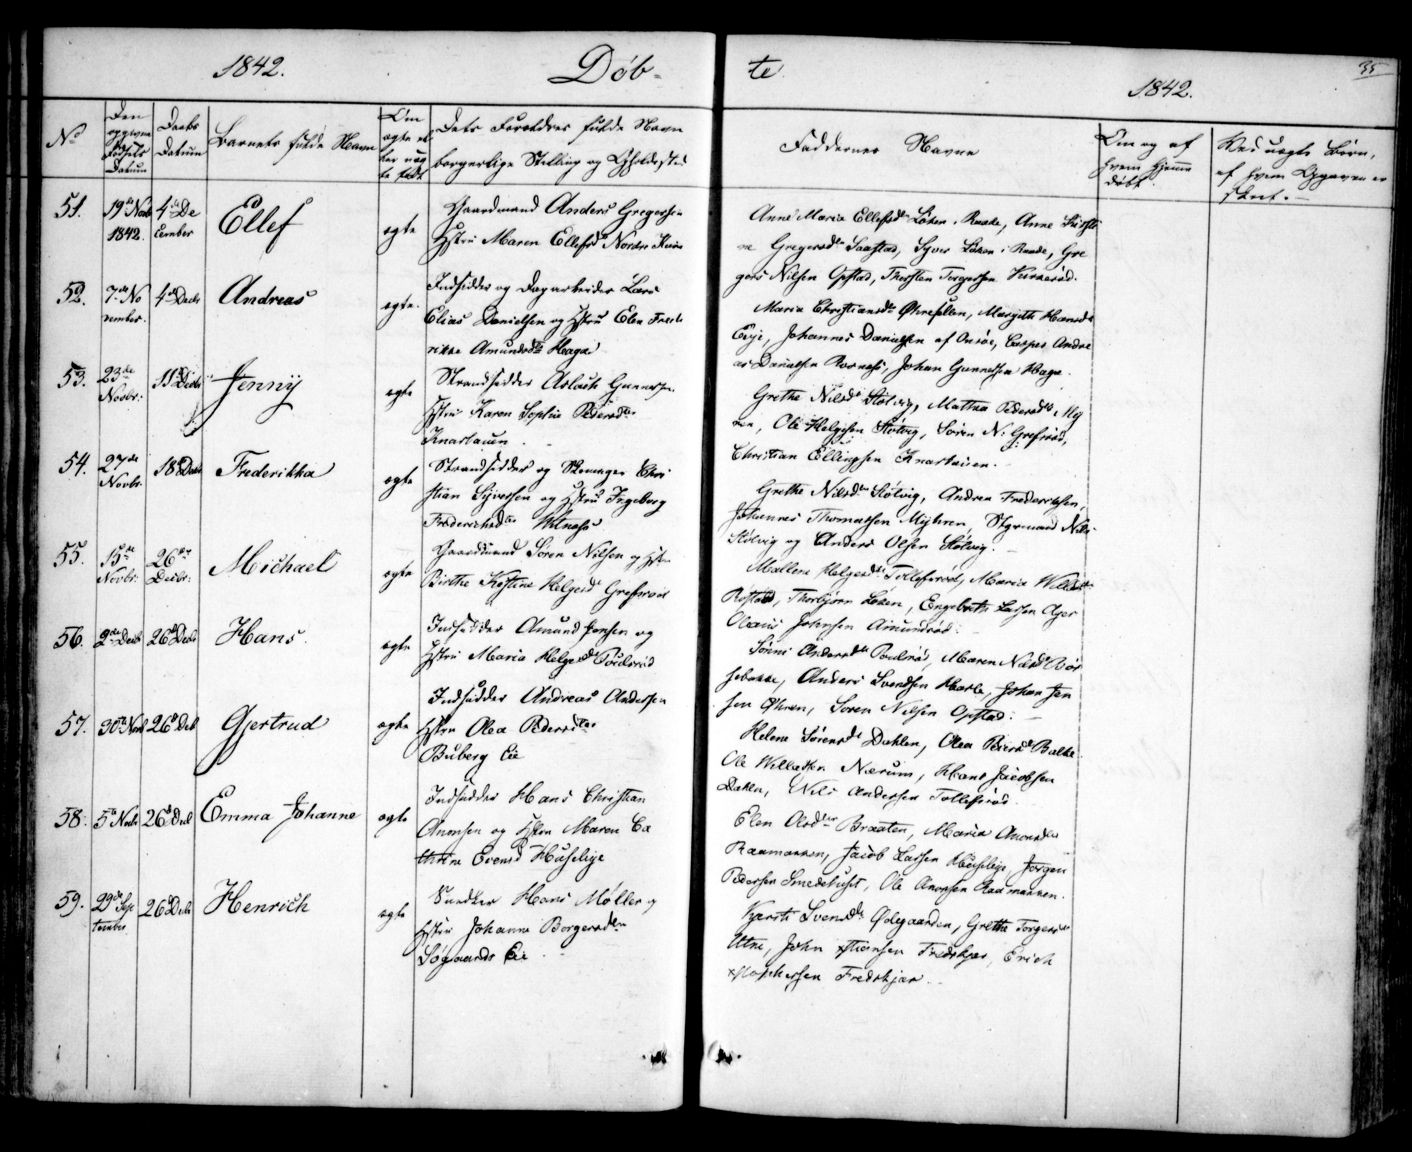 1842.
Døb-
te
1842.
35
No
Den opgivne Fødsels Datum
Daabs Datum
Barnets fulde Navn
Om ægte eller uægte født
Forældres fulde Navn
borgerlige Stilling og Opholdssted
Faddernes Navne
Om og af
hvem hjemme
døbt.
Ved uægte Børn,
af hvem Opgaven er
skeet.
51.
19de Novb
1842.
4de De
cember
Ellef
ægte
Gaardmand Anders Gregersen
Hstru Maren Ellefsd Nordre
Anne Maria Ellefsdtr Løken i Raade, Anne Kirsti
ne Gregersdtr Saastad, Syver Løken i Raade, Gre
gers Nilsen Opstad, Thorsten Torgersen Kirkerød.
52.
7de No
vember.
4de Decbr
Andreas
ægte
Indsidder og Dagarbeider Lars
Elias Danielsen og Hstru Elen Frede
rikke Amundsdtr Haga
Maria Christiansdtr Margith Hansdtr
Evje, Johannes Danielsen af Onsøe, Casper Andre
as Danielsen Johan Gunnelsen Haga.
53.
23de
Novbr:
11te Decbr
Jenny
ægte
Strandsidder Aslach Gunnersen
Hstru Karen Sophie Pedersdtr
Knarlauen.
Grethe Nilsdtr Støtvig, Mathea Pedersdtr Myh
ren, Ole Helgesen Støtvig, Søren N. Grefsrød,
Christian Ellingsen Knarlauen.
54.
27de
Novbr.
18de Decbr
Frederikka
ægte
Strandsidder og Skomager Chri
stian Syversen og Hstru Ingeborg
Frederichsdtr
Grethe Nilsdtr Støtvig, Andrea Frederichsen,
Johannes Thomassen Myhren, Styrmand Nils
Støtvig og Anders Olsen Støtvig.
55.
15de
Novbr:
26de
Decbr:
Michael
ægte
Gaardmand Søren Nilsen og Hstru
Birthe Kistine Helgesd Grefsrød
Mallene Helgesdtr Tollefsrød, Maria Willads
Røstad, Thorbjørn Løken, Engebreth Larsen Ager
Olaus Johnsen Amundrød.
56.
2den Decb
26de Decbr
Hans.
ægte
Indsidder Amund Jensen og
Hstru Maria Helgesdtr Poulsrød
Andersdtr Poulsrød, Maren Nilsdtr Vør
sebakke, Anders Svendsen Karlse, Johan Jen
sen Søren Nilsen Opstad.
57.
30te Novb
26de Decb
Gjertrud
ægte
Indsidder Andreas Andersen
Hstru Olea Pedersdtr
Buberg Eie
Helene Sørensdtr Dahlen, Olea Peersdtr Balke
Ole Willadsen Nærum, Hans Jacobsen
Dahlen, Nils Andersen Tollefsrød.
58.
5te Novbr
26de Decb
Emma Johanne
ægte
Indsidder Hans Christian
Arnesen og Hstru Maren Ca
thrine Evensd Huseleje
Elen Olsdtr Braaten, Maria Arnesdtr
Raamarken, Jacob Larsen Huseleje Jørgen
Pedersen Smedehuset, Ole Arnesen Raamarken.
59.
29de Sep
tember
26de Decbr
Henrich
ægte
Snedker Hans Møller og
Hstru Johanne Borgersdtr
Søgaards Eie
Kjersti Svensdtr Ødegaarden, Grethe Torgersdtr
Utne, John Xstiansen Fredskjær, Erich
Xstophersen Fredskjær.